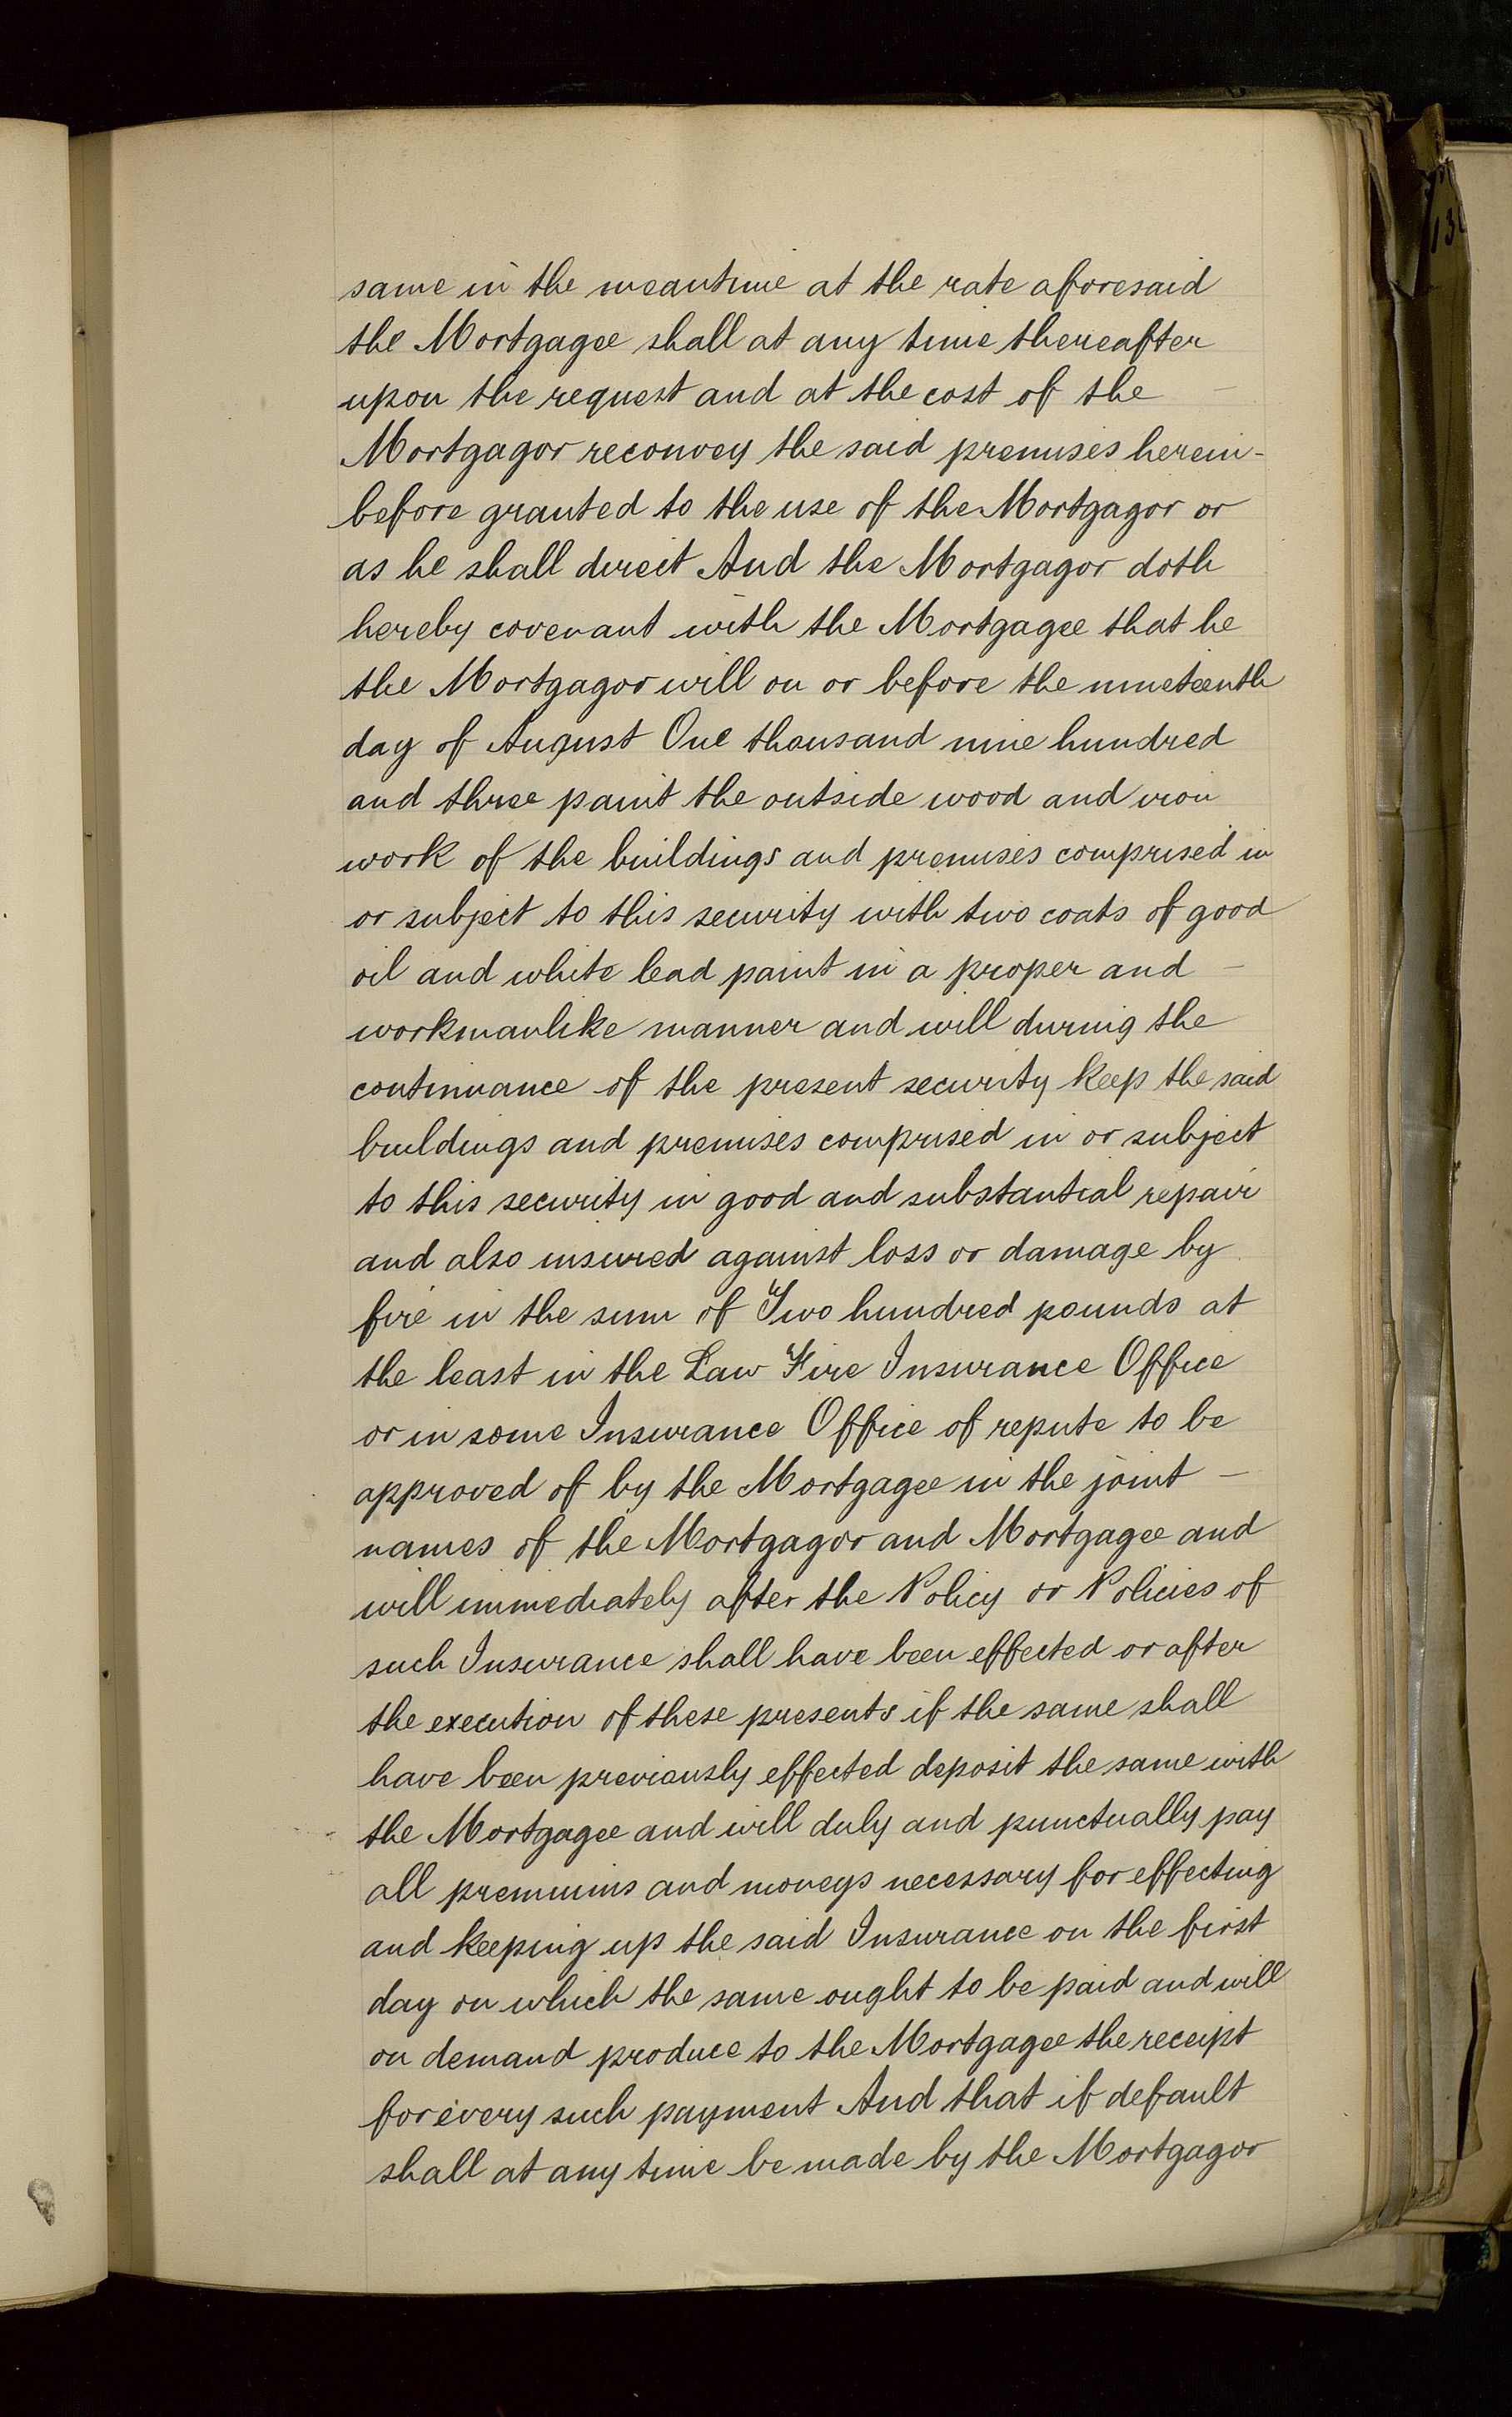 same in the meantime at the rate aforesaid
the Mortgagee shall at any time thereafter
upon the request and at the cost of the —
Mortgagor reconvey the said premises herein-
before granted to the use of the Mortgagor or
as he shall direct And the Mortgagor doth
hereby covenant with the Mortgagee that he
the Mortgagor will on or before the nineteenth
day of August One thousand nine hundred
and three paint the outside wood and iron
work of the buildings and premises comprised in
or subject to this security with two coats of good
oil and white lead paint in a proper and —
workmanlike manner and will during the
continuance of the present security keep the said
buildings and premises comprised in or subject
to this security in good and substantial repair
and also insured against loss or damage by
fire in the sum of Two hundred pounds at
the least in the Law Fire Insurance Office
or in some Insurance Office of repute to be
approved of by the Mortgagee in the joint —
names of the Mortgagor and Mortgagee and
will immediately after the Policy or Policies of
such Insurance shall have been effected or after
the execution of these presents if the same shall
have been previously effected deposit the same with
the Mortgagee and will duly and punctually pay
all premiums and moneys necessary for effecting
and keeping up the said Insurance on the first
day on which the same ought to be paid and will
on demand produce to the Mortgagee the receipt
for every such payment And that if default
shall at any time be made by the Mortgagor